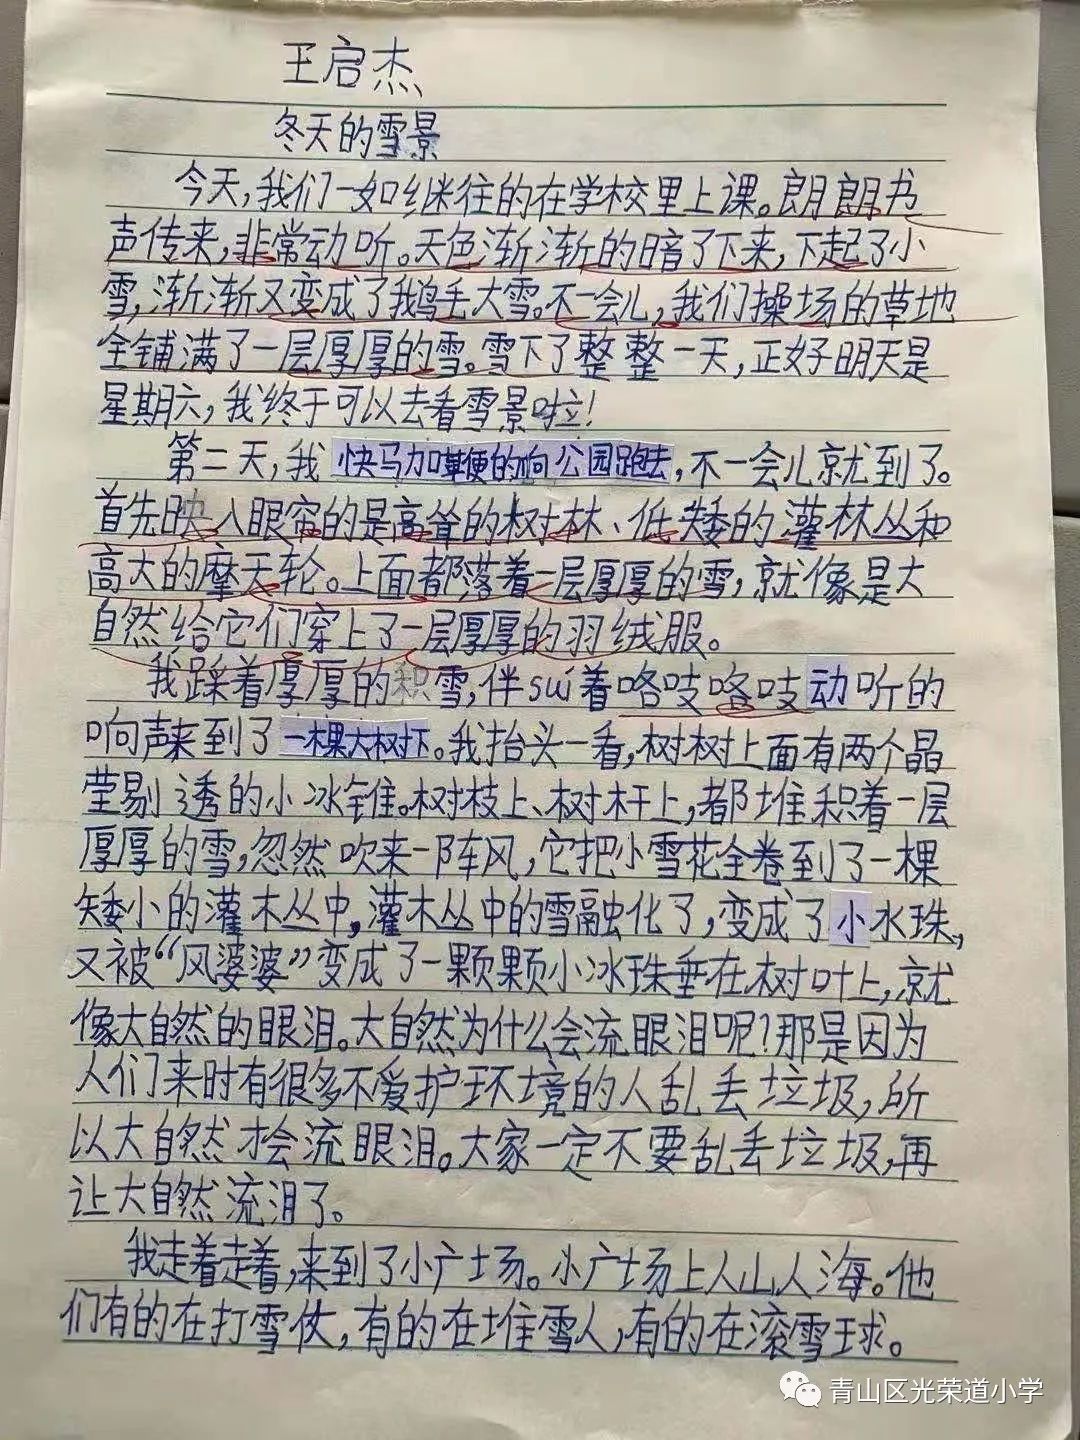 王启杰
冬天的雪景
今天,我们一如继往的在学校里上课。朗朗书
声传来,非常动听。天色渐渐的暗了下来,下起了小
雪,渐渐又变成了鹅毛大雪。不一会儿,我们操场的草地
全铺满了一层厚厚的雪。雪下了整整一天,正好明天是
星期六,我终于可以去看雪景啦!
第二天,我快马加鞭的向公园跑去,不一会儿就到了。
首先映入眼帘的是高耸的树林、低矮的灌林丛和
高大的摩天轮。上面都落着一层厚厚的雪,就像是大
自然给它们穿上了一层厚厚的羽绒服。
我踩着厚厚的积雪,伴suí着咯吱咯吱动听的
响声来到了一棵大树下。我抬头一看,树树上面有两个晶
莹剔透的小冰锥。树枝上、树杆上,都堆积着一层
厚厚的雪,忽然吹来一阵风,它把小雪花全卷到了一棵
矮小的灌木丛中,灌木丛中的雪融化了,变成了小水珠,
又被“风婆婆”变成了一颗颗小冰珠垂在树叶上,就
像大自然的眼泪。大自然为什么会流眼泪呢?那是因为
人们来时有很多不爱护环境的人乱丢垃圾,所
以大自然才会流眼泪。大家一定不要乱丢垃圾,再
让大自然流泪了。
我走着走着,来到了小广场。小广场上人山人海。他
们有的在打雪仗,有的在堆雪人,有的在滚雪球。
青山区光荣道小学